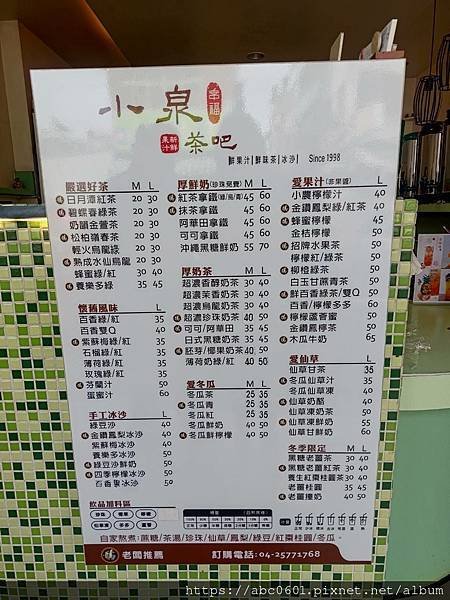 小泉
幸福
新鮮果汁
茶吧
鮮果汁|鮮味茶|冰沙| Since 1998
嚴選好茶 M L
日月潭紅茶 20 30
碧螺春綠茶 20 30
奶韻金萱茶 20 30
松柏嶺春茶 20 30
輕火烏龍綠 20 30
熟成水仙烏龍 20 30
蜂蜜綠/紅 30 40
養樂多綠 35 45
懷舊風味 L
百香綠/紅 35
百香雙Q 40
紫蘇梅綠/紅 35
石榴綠/紅 35
薄荷綠/紅 35
玫瑰綠/紅 35
芬蘭汁 50
蛋蜜汁 60
手工冰沙 L
綠豆沙 40
金鑽鳳梨冰沙 40
紫蘇梅冰沙 40
養樂多冰沙 50
綠豆沙鮮奶 50
四季檸檬冰沙 50
百香果冰沙 50
飲品加料區
厚鮮奶(珍珠免費) M L
紅茶拿鐵 45 60
抹茶拿鐵 45 60
阿華田拿鐵 45 60
可可拿鐵 45 60
沖繩黑糖鮮奶 55 70
厚奶茶 M L
超濃香醇奶茶 30 40
超濃茉香奶茶 30 40
超濃烏龍奶茶 30 40
超濃珍珠奶茶 40 50
可可/阿華田 35 45
日式黑糖奶茶 35 45
胚芽/椰果奶茶 40 50
薄荷奶綠/紅 40 50
愛冬瓜 M L
冬瓜茶 25 35
冬瓜青 25 35
冬瓜紅 25 35
冬瓜鮮奶 40 50
冬瓜鮮檸檬 40 50
愛果汁 L
小農檸檬汁 40
金鑽鳳梨綠/紅茶 50
蜂蜜檸檬 45
金桔檸檬 50
招牌水果茶 50
檸檬紅/綠茶 50
柳橙綠茶 50
白玉甘蔗青茶 50
鮮百香綠茶/雙Q 50
百香/檸檬多多 60
檸檬蘆薈蜜 50
金鑽鳳檸茶 50
木瓜牛奶 65
愛仙草 L
仙草甘茶 35
冬瓜仙草汁 35
仙草凍 40
仙草奶酪 40
仙草凍奶茶 50
仙草凍鮮奶 55
仙草甘鮮奶 60
冬季限定 M L
黑糖老薑茶 30 40
黑糖老薑紅茶 30 40
養生紅棗桂圓茶 30 40
老薑桂圓 35 45
老薑撞奶 40 50
自家熬煮:蔗糖/茶湯/珍珠/仙草/鳳梨/綠豆/紅棗桂圓/冬瓜
老闆推薦 訂購電話:04-25771768
https://abc0601.pixnet.net/album